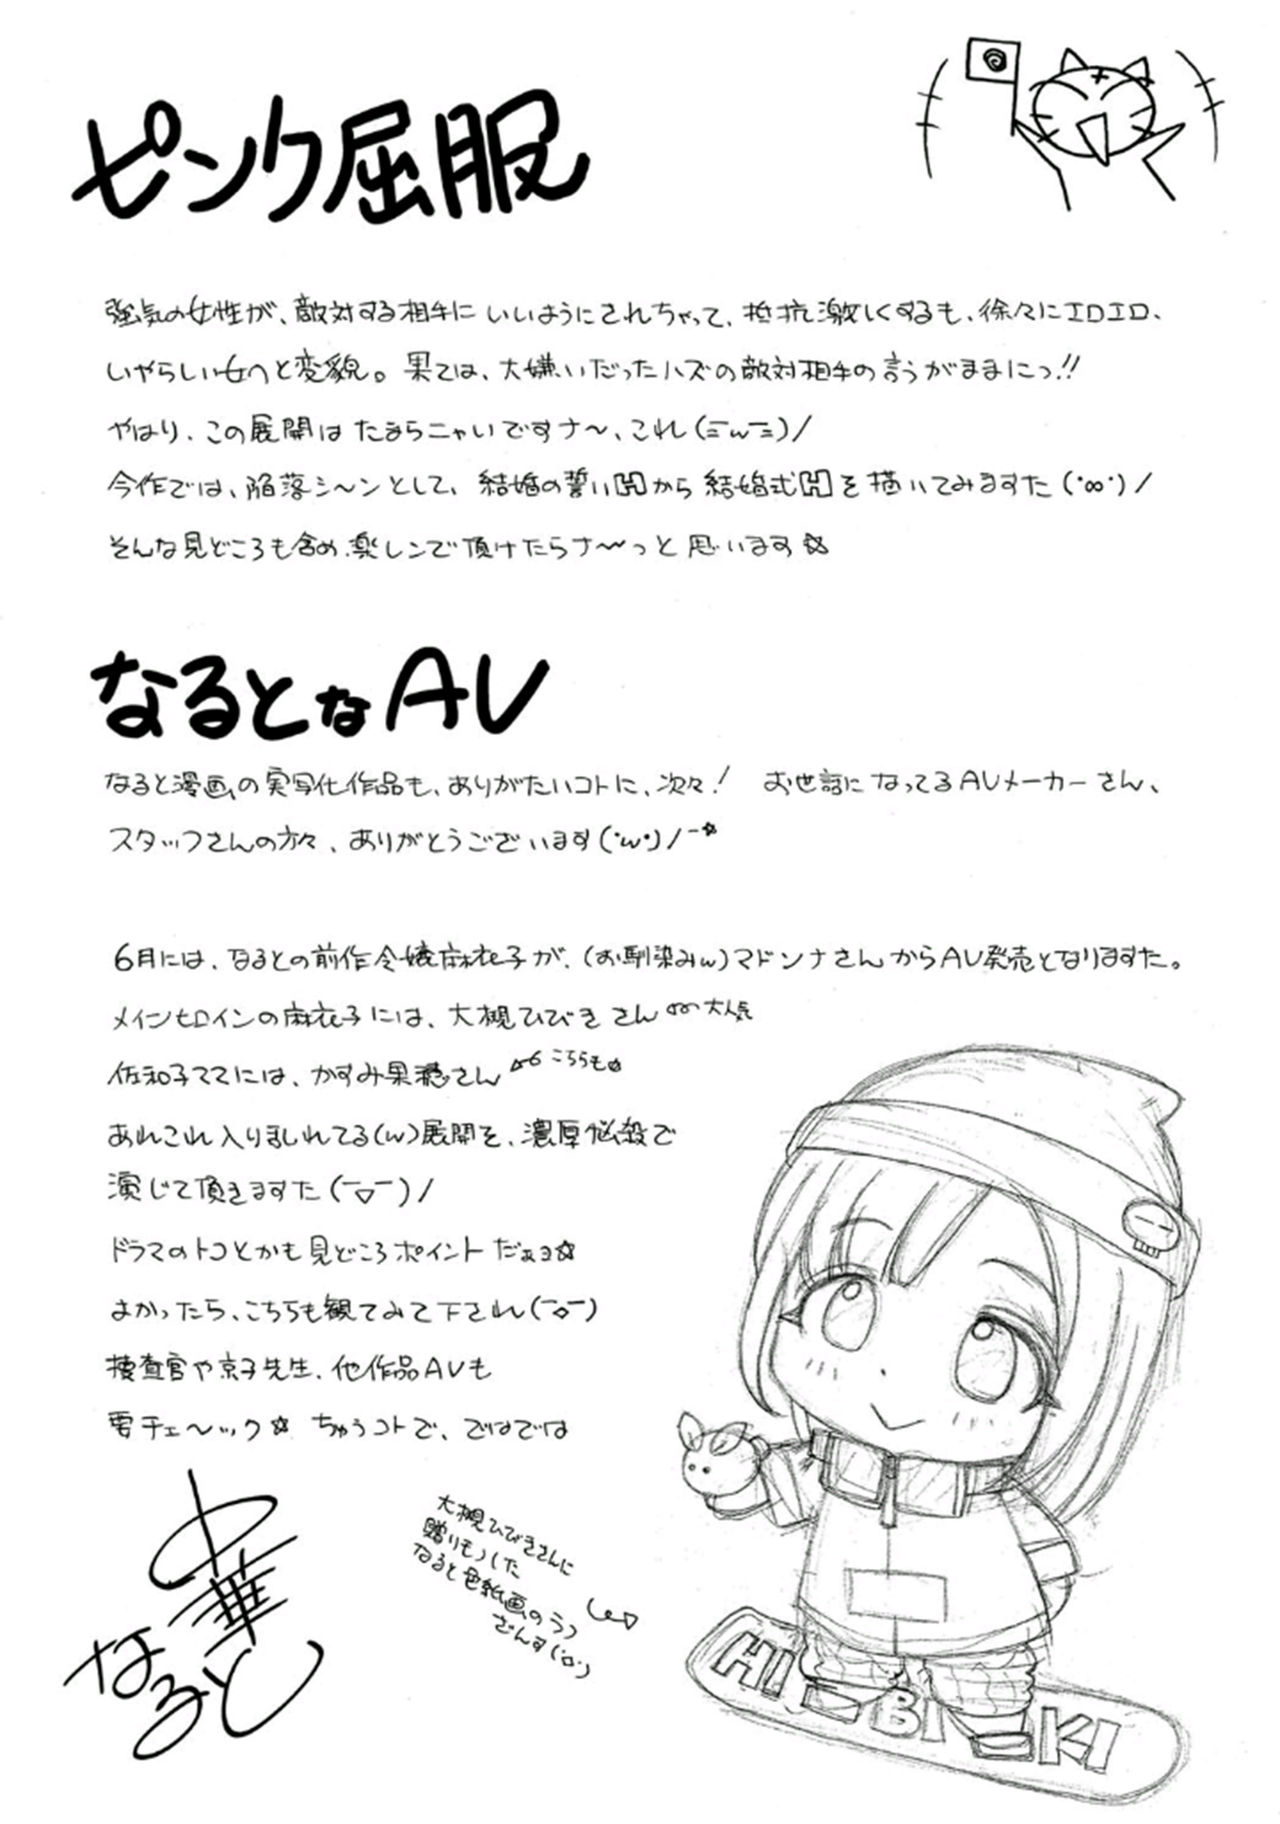 ピンク屈服
強気の女性が、敵対する相手にいいようにされちゃって、抵抗激しくするも、徐々にエロエロ、
いやらしい女へと変貌。果ては、大嫌いだったハズの敵対相手の言うがままにっ!!
やはり、この展開はたまらニャいですナ〜、これ(≡ω≡)/
今作では、陥落シ〜ンとして、結婚の誓いHから結婚式Hを描いてみますた(・∞・)/
そんな見どころも含め、楽しンで頂けたらナ〜っと思います☆
なるとなAV
なると漫画の実写化作品も、ありがたいコトに、次々! お世話になってるAVメーカーさん、
スタッフさんの方々、ありがとうございます(・ω・)/-☆
6月には、なるとの前作令嬢麻衣子が、(お馴染みw)マドンナさんからAV発売となりますた。
メインヒロインの麻衣子には、大槻ひびきさん 大人気
佐和子ママには、かすみ果穂さん こちらも☆
あれこれ入りみだれてる(w)展開を、濃厚悩殺で
演じて頂きますた(￣▽￣)/
ドラマのトコとかも見どころポイントだぉョ☆
よかったら、こちらも観てみて下され(￣◇￣)
捜査官や京子先生、他作品AVも
要チェ〜ック☆ ちゅうコトで、ではでは
中華なると
大槻ひびきさんに
贈りものした
なると色紙画のラフ
ざんす(・o・)
HIBIKI